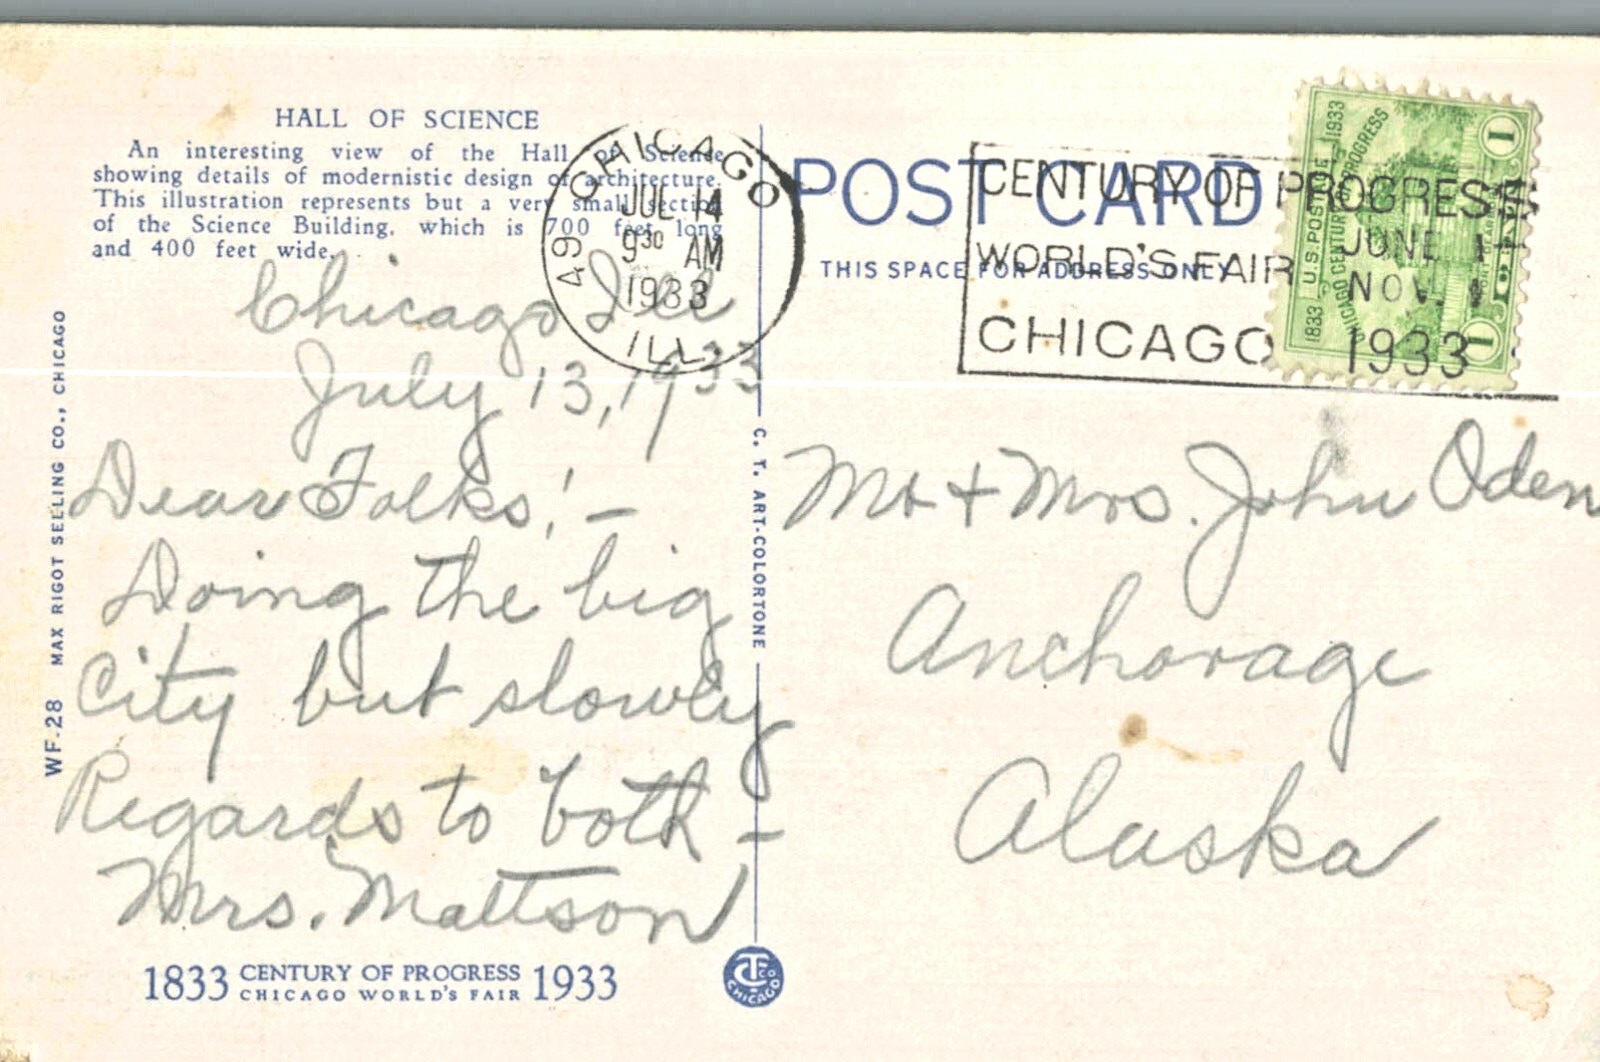 HALL OF SCIENCE
An interesting view of the Hall of Science
showing details of modernistic design of architecture.
This illustration represents but a very small section
of the Science Building, which is 700 feet long
and 400 feet wide.
CHICAGO
JUL 14
9 30 AM
1933
ILL.
49
POST CARD
THIS SPACE FOR ADDRESS ONLY
CENTURY OF PROGRESS
WORLD'S FAIR
CHICAGO
JUNE 1
NOV. 1
1933
1833 U.S. POSTAGE 1933
CHICAGO CENTURY OF PROGRESS
1
1
Chicago Ill
July 13, 1933
Dear Folks! –
Doing the big
City but slowly
Regards to both –
Mrs. Mattson
Mr + Mrs. John Oden
Anchorage
Alaska
WF-28 MAX RIGOT SELLING CO., CHICAGO
C. T. ART-COLORTONE
1833 CENTURY OF PROGRESS 1933
CHICAGO WORLD'S FAIR
CT CO
CHICAGO